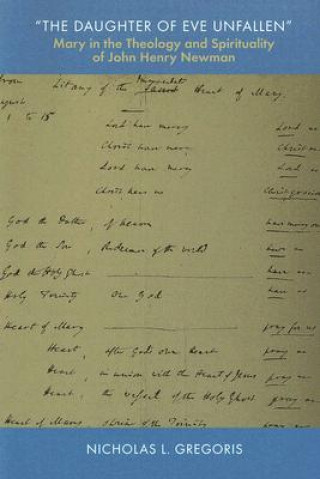 "THE DAUGHTER OF EVE UNFALLEN"
Mary in the Theology and Spirituality
of John Henry Newman
from Litany of the Heart of Mary
1 to 15
Lord have mercy Lord
Christ have mercy Christ
Lord have mercy Lord
Christ hear us Christ
God the Father, of heaven have mercy
God the Son, Redeemer of the world have
God the Holy Ghost have
Holy Trinity One God
Heart of Mary pray for us
Heart, after God's own Heart pray
Heart, in union with the Heart of Jesus pray
Heart, the vessel of the Holy Ghost pray
Heart of Mary, shrine of the Trinity pray
NICHOLAS L. GREGORIS